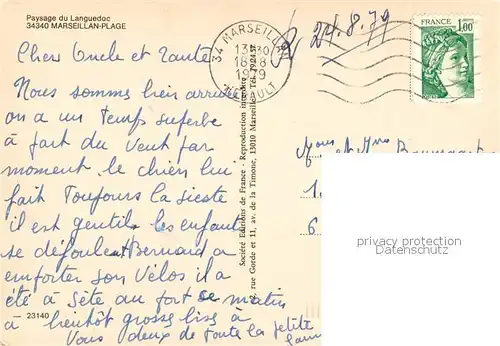 Paysage du Languedoc
34340 MARSEILLAN-PLAGE
34 MARSEILLAN
13H30
18-8
1979
HERAULT
24.8.79
FRANCE
1,00
Cher Oncle et Tante
Nous sommes bien arrivés
on a un temps superbe
à part du vent par
moment le chien lui
fait Toujours la sieste
il est gentil les enfants
se défoulent Bernard a
emporter son Vélos il a
été à Sète au fort ce matin
à bientôt grosses bises à
Vous deux de toute la petite
Société Editions de France - Reproduction interdite
9, rue Gorde et 11, av. de la Timone, 13010 Marseille
Mr et Mme
1
6
privacy protection
Datenschutz
— 23140